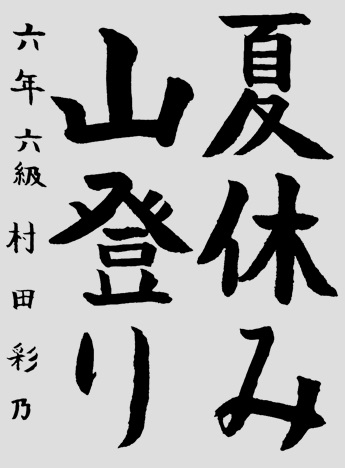 夏休み
山登り
六年 六級 村田彩乃